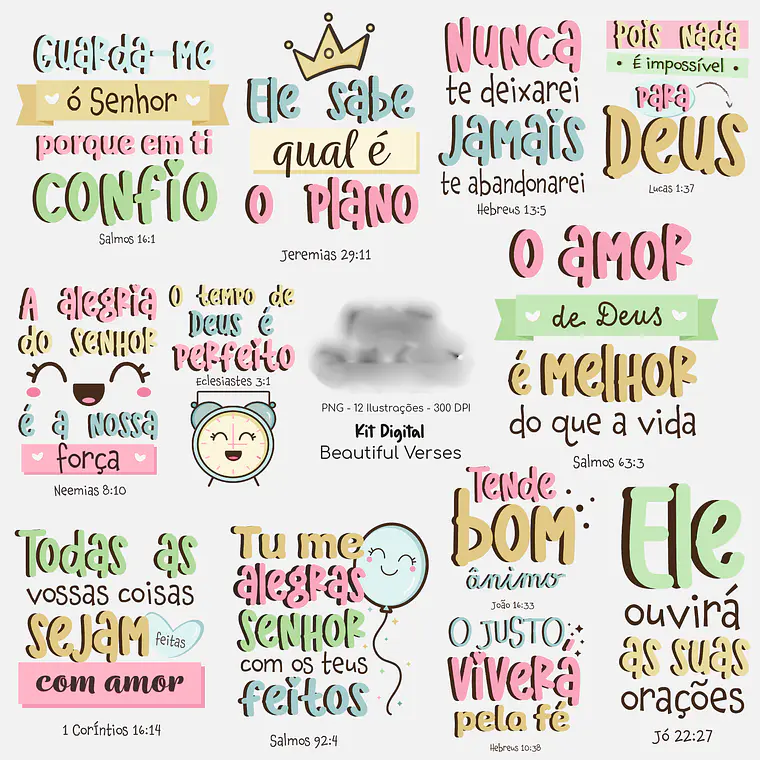 Guarda-me
ó Senhor
porque em ti
CONFIO
Salmos 16:1
Ele sabe
qual é
o plano
Jeremias 29:11
Nunca
te deixarei
Jamais
te abandonarei
Hebreus 13:5
Pois nada
• É impossível •
para
Deus
Lucas 1:37
A alegria
do Senhor
é a nossa
força
Neemias 8:10
O tempo de
Deus é
perfeito
Eclesiastes 3:1
PNG - 12 Ilustrações - 300 DPI
Kit Digital
Beautiful Verses
O amor
de Deus
é melhor
do que a vida
Salmos 63:3
Todas as
vossas coisas
sejam feitas
com amor
1 Coríntios 16:14
Tu me
alegras
Senhor
com os teus
feitos
Salmos 92:4
Tende
bom
ânimo
João 16:33
O JUSTO
viverá
pela fé
Hebreus 10:38
Ele
ouvirá
as suas
orações
Jó 22:27